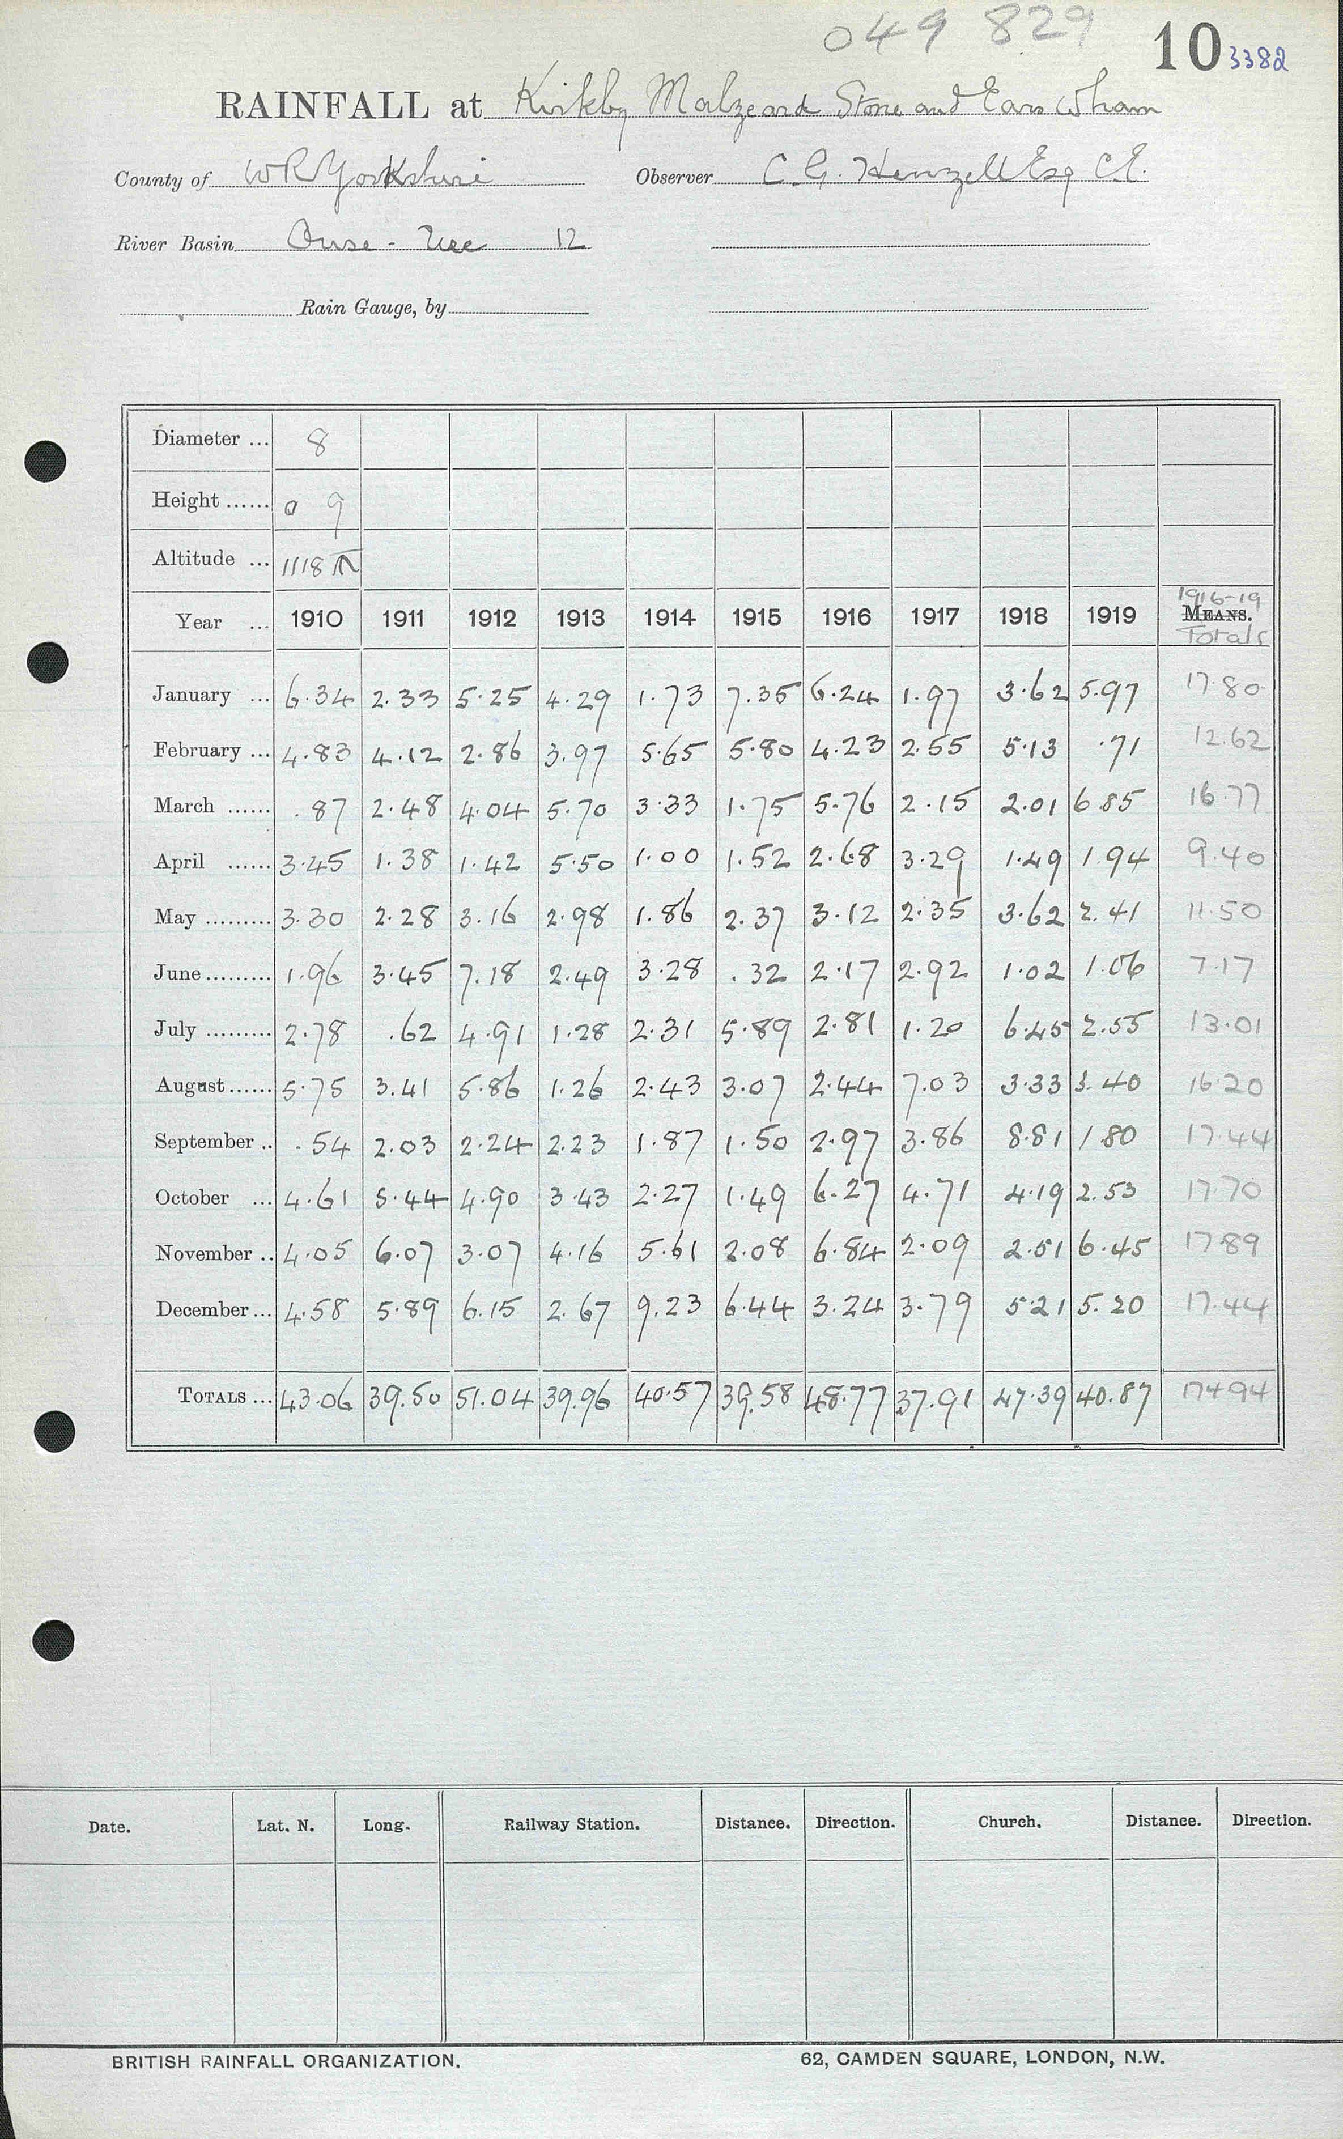 049 829
10 3382
RAINFALL at Kirkby Malzeard Stone and Ears Wham
County of W R Yorkshire Observer C. G. Henzell Esq C.E.
River Basin Ouse - Ure 12
Rain Gauge, by
Diameter ... 8
Height ...... 0 9
Altitude ... 1118
1916-19
Year ... 1910 1911 1912 1913 1914 1915 1916 1917 1918 1919 MEANS.
Totals
January ... 6.34 2.33 5.25 4.29 1.73 7.35 6.24 1.97 3.62 5.97 17.80
February ... 4.83 4.12 2.86 3.97 5.65 5.80 4.23 2.55 5.13 .71 12.62
March ...... .87 2.48 4.04 5.70 3.33 1.75 5.76 2.15 2.01 6.85 16.77
April ...... 3.45 1.38 1.42 5.50 1.00 1.52 2.68 3.29 1.49 1.94 9.40
May ......... 3.30 2.28 3.16 2.98 1.86 2.37 3.12 2.35 3.62 2.41 11.50
June ......... 1.96 3.45 7.18 2.49 3.28 .32 2.17 2.92 1.02 1.06 7.17
July ......... 2.78 .62 4.91 1.28 2.31 5.89 2.81 1.20 6.45 2.55 13.01
August ...... 5.75 3.41 5.86 1.26 2.43 3.07 2.44 7.03 3.33 3.40 16.20
September .. .54 2.03 2.24 2.23 1.87 1.50 2.97 3.86 8.81 1.80 17.44
October ... 4.61 5.44 4.90 3.43 2.27 1.49 6.27 4.71 4.19 2.53 17.70
November .. 4.05 6.07 3.07 4.16 5.61 2.08 6.84 2.09 2.51 6.45 17.89
December ... 4.58 5.89 6.15 2.67 9.23 6.44 3.24 3.79 5.21 5.20 17.44
TOTALS ... 43.06 39.50 51.04 39.96 40.57 39.58 48.77 37.91 47.39 40.87 174.94
Date. Lat. N. Long. Railway Station. Distance. Direction. Church. Distance. Direction.
BRITISH RAINFALL ORGANIZATION. 62, CAMDEN SQUARE, LONDON, N.W.